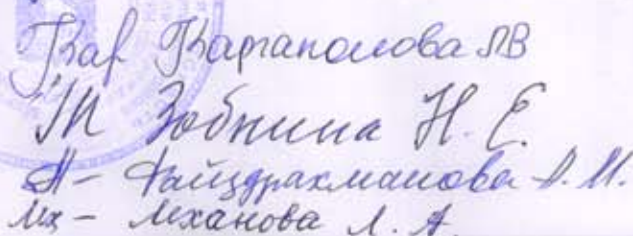 Кар Каргаполова ЛВ
Зобнина Н. Е.
Файздрахманова А. И.
Их - Иханова Л. А.